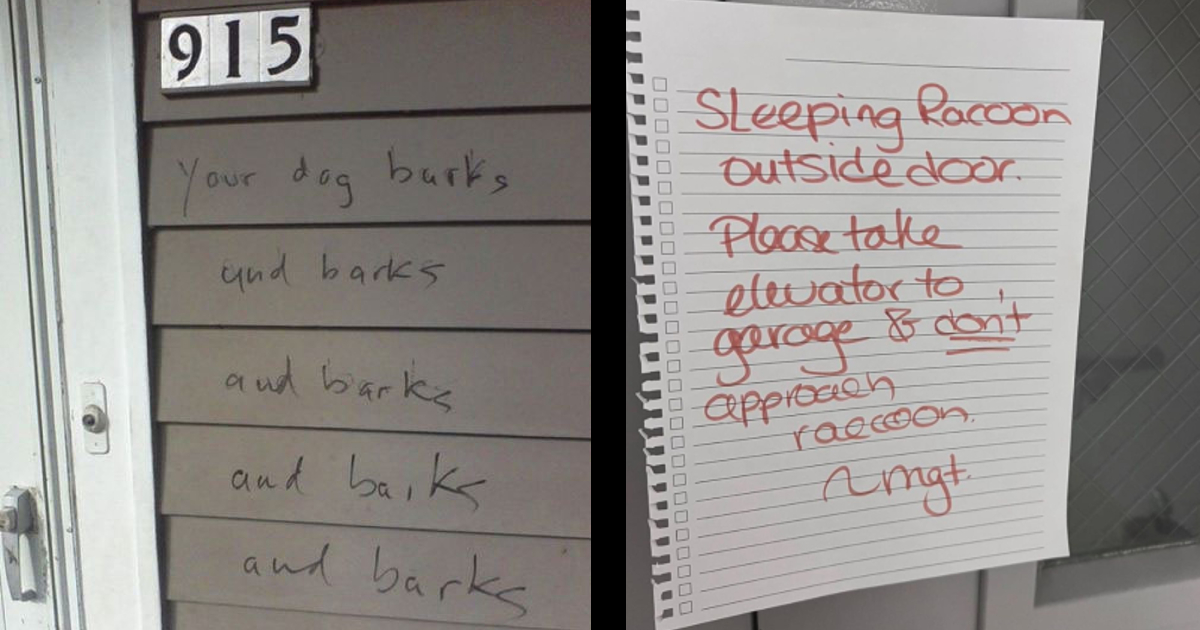 915
your dog barks
and barks
and barks
and barks
and barks
Sleeping Racoon
outside door.
Please take
elevator to
garage & don't
approach
raccoon.
~mgt.